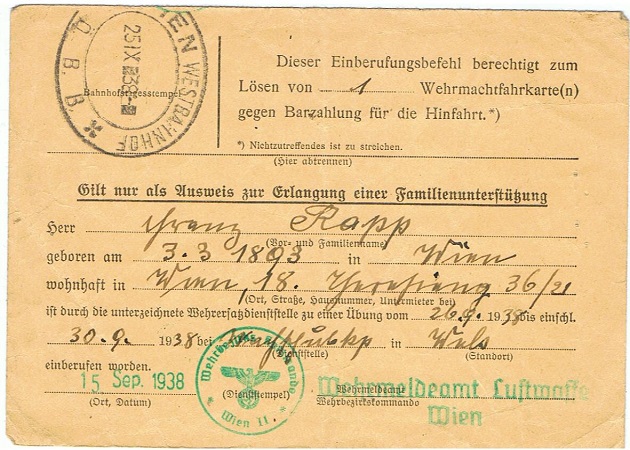 WIEN WESTBAHNHOF
25 IX 38
Ö. B. B.
Bahnhofstagesstempel
Dieser Einberufungsbefehl berechtigt zum
Lösen von 1 Wehrmachtfahrkarte(n)
gegen Barzahlung für die Hinfahrt.*)
*) Nichtzutreffendes ist zu streichen.
(Hier abtrennen)
Gilt nur als Ausweis zur Erlangung einer Familienunterstützung
Herr Franz Rapp
(Vor- und Familienname)
geboren am 3.3 1893 in Wien
wohnhaft in Wien, 18. 36/21
(Ort, Straße, Hausnummer, Untermieter bei)
ist durch die unterzeichnete Wehrersatzdienststelle zu einer Übung vom 26.9. 1938 bis einschl.
30.9. 1938 bei in Wels
(Dienststelle) (Standort)
einberufen worden.
15. Sep. 1938
(Ort, Datum)
(Dienststempel)
Wien II.
Wehrmeldeamt
Wehrbezirkskommando
Wehrmeldeamt Luftwaffe
Wien